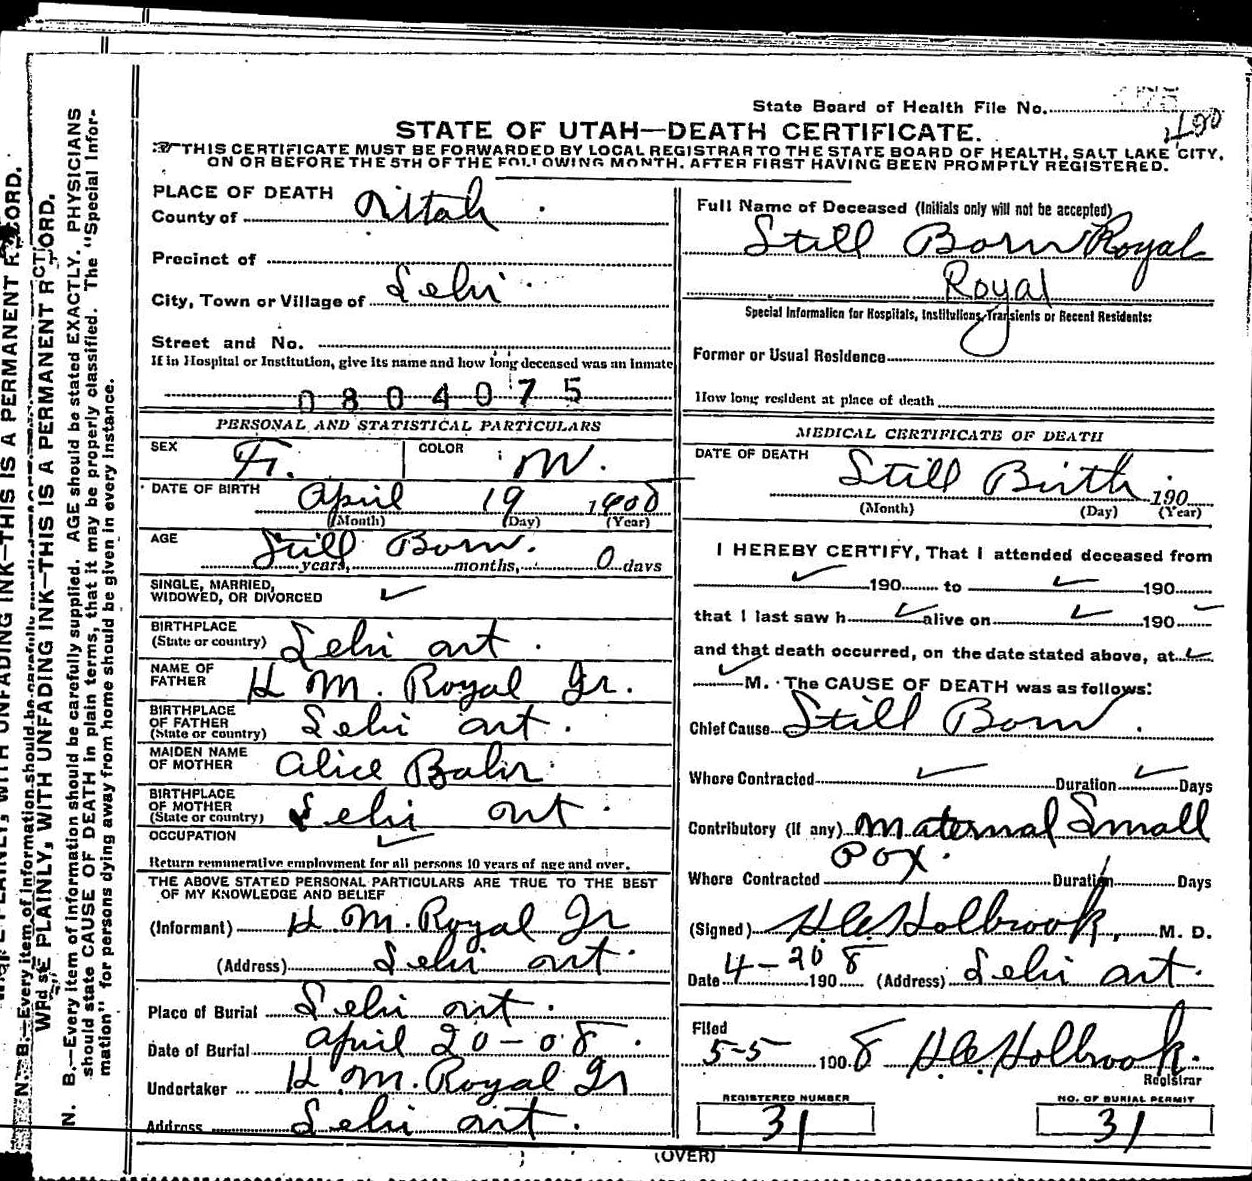 State Board of Health File No.
190
STATE OF UTAH—DEATH CERTIFICATE.
THIS CERTIFICATE MUST BE FORWARDED BY LOCAL REGISTRAR TO THE STATE BOARD OF HEALTH, SALT LAKE CITY,
ON OR BEFORE THE 5TH OF THE FOLLOWING MONTH. AFTER FIRST HAVING BEEN PROMPTLY REGISTERED.
PLACE OF DEATH
County of Utah
Precinct of
City, Town or Village of Lehi
Street and No.
If in Hospital or Institution, give its name and how long deceased was an inmate
0804075
PERSONAL AND STATISTICAL PARTICULARS
SEX F. COLOR W.
DATE OF BIRTH April 19 1908
(Month) (Day) (Year)
AGE Still Born. 0 days
years, months,
SINGLE, MARRIED,
WIDOWED, OR DIVORCED ✓
BIRTHPLACE
(State or country) Lehi Ut.
NAME OF
FATHER H M. Royal Jr.
BIRTHPLACE
OF FATHER
(State or country) Lehi Ut.
MAIDEN NAME
OF MOTHER Alice
BIRTHPLACE
OF MOTHER
(State or country) Lehi Ut
OCCUPATION ✓
Return remunerative employment for all persons 10 years of age and over.
THE ABOVE STATED PERSONAL PARTICULARS ARE TRUE TO THE BEST
OF MY KNOWLEDGE AND BELIEF
(Informant) H. M. Royal Jr
(Address) Lehi Ut.
Place of Burial Lehi Ut.
Date of Burial April 20-08.
Undertaker H M. Royal Jr
Address Lehi Ut.
Full Name of Deceased (Initials only will not be accepted)
Still Born Royal
Royal
Special Information for Hospitals, Institutions, Transients or Recent Residents:
Former or Usual Residence
How long resident at place of death
MEDICAL CERTIFICATE OF DEATH
DATE OF DEATH Still Birth 190
(Month) (Day) (Year)
I HEREBY CERTIFY, That I attended deceased from
✓ 190 to ✓ 190
that I last saw h ✓ alive on ✓ 190 ✓
and that death occurred, on the date stated above, at ✓
✓ M. The CAUSE OF DEATH was as follows:
Chief Cause Still Born.
Where Contracted ✓ Duration ✓ Days
Contributory (if any) Maternal Small
Pox.
Where Contracted Duration Days
(Signed) H. C. Holbrook, M. D.
Date 4-20 1908 (Address) Lehi Ut.
Filed
5-5 1908 H. C. Holbrook.
Registrar
REGISTERED NUMBER
31
NO. OF BURIAL PERMIT
31
(OVER)
WRITE PLAINLY, WITH UNFADING INK—THIS IS A PERMANENT RECORD.
N. B.—Every item of information should be carefully supplied. AGE should be stated EXACTLY. PHYSICIANS
should state CAUSE OF DEATH in plain terms, that it may be properly classified. The "Special Infor-
mation" for persons dying away from home should be given in every instance.